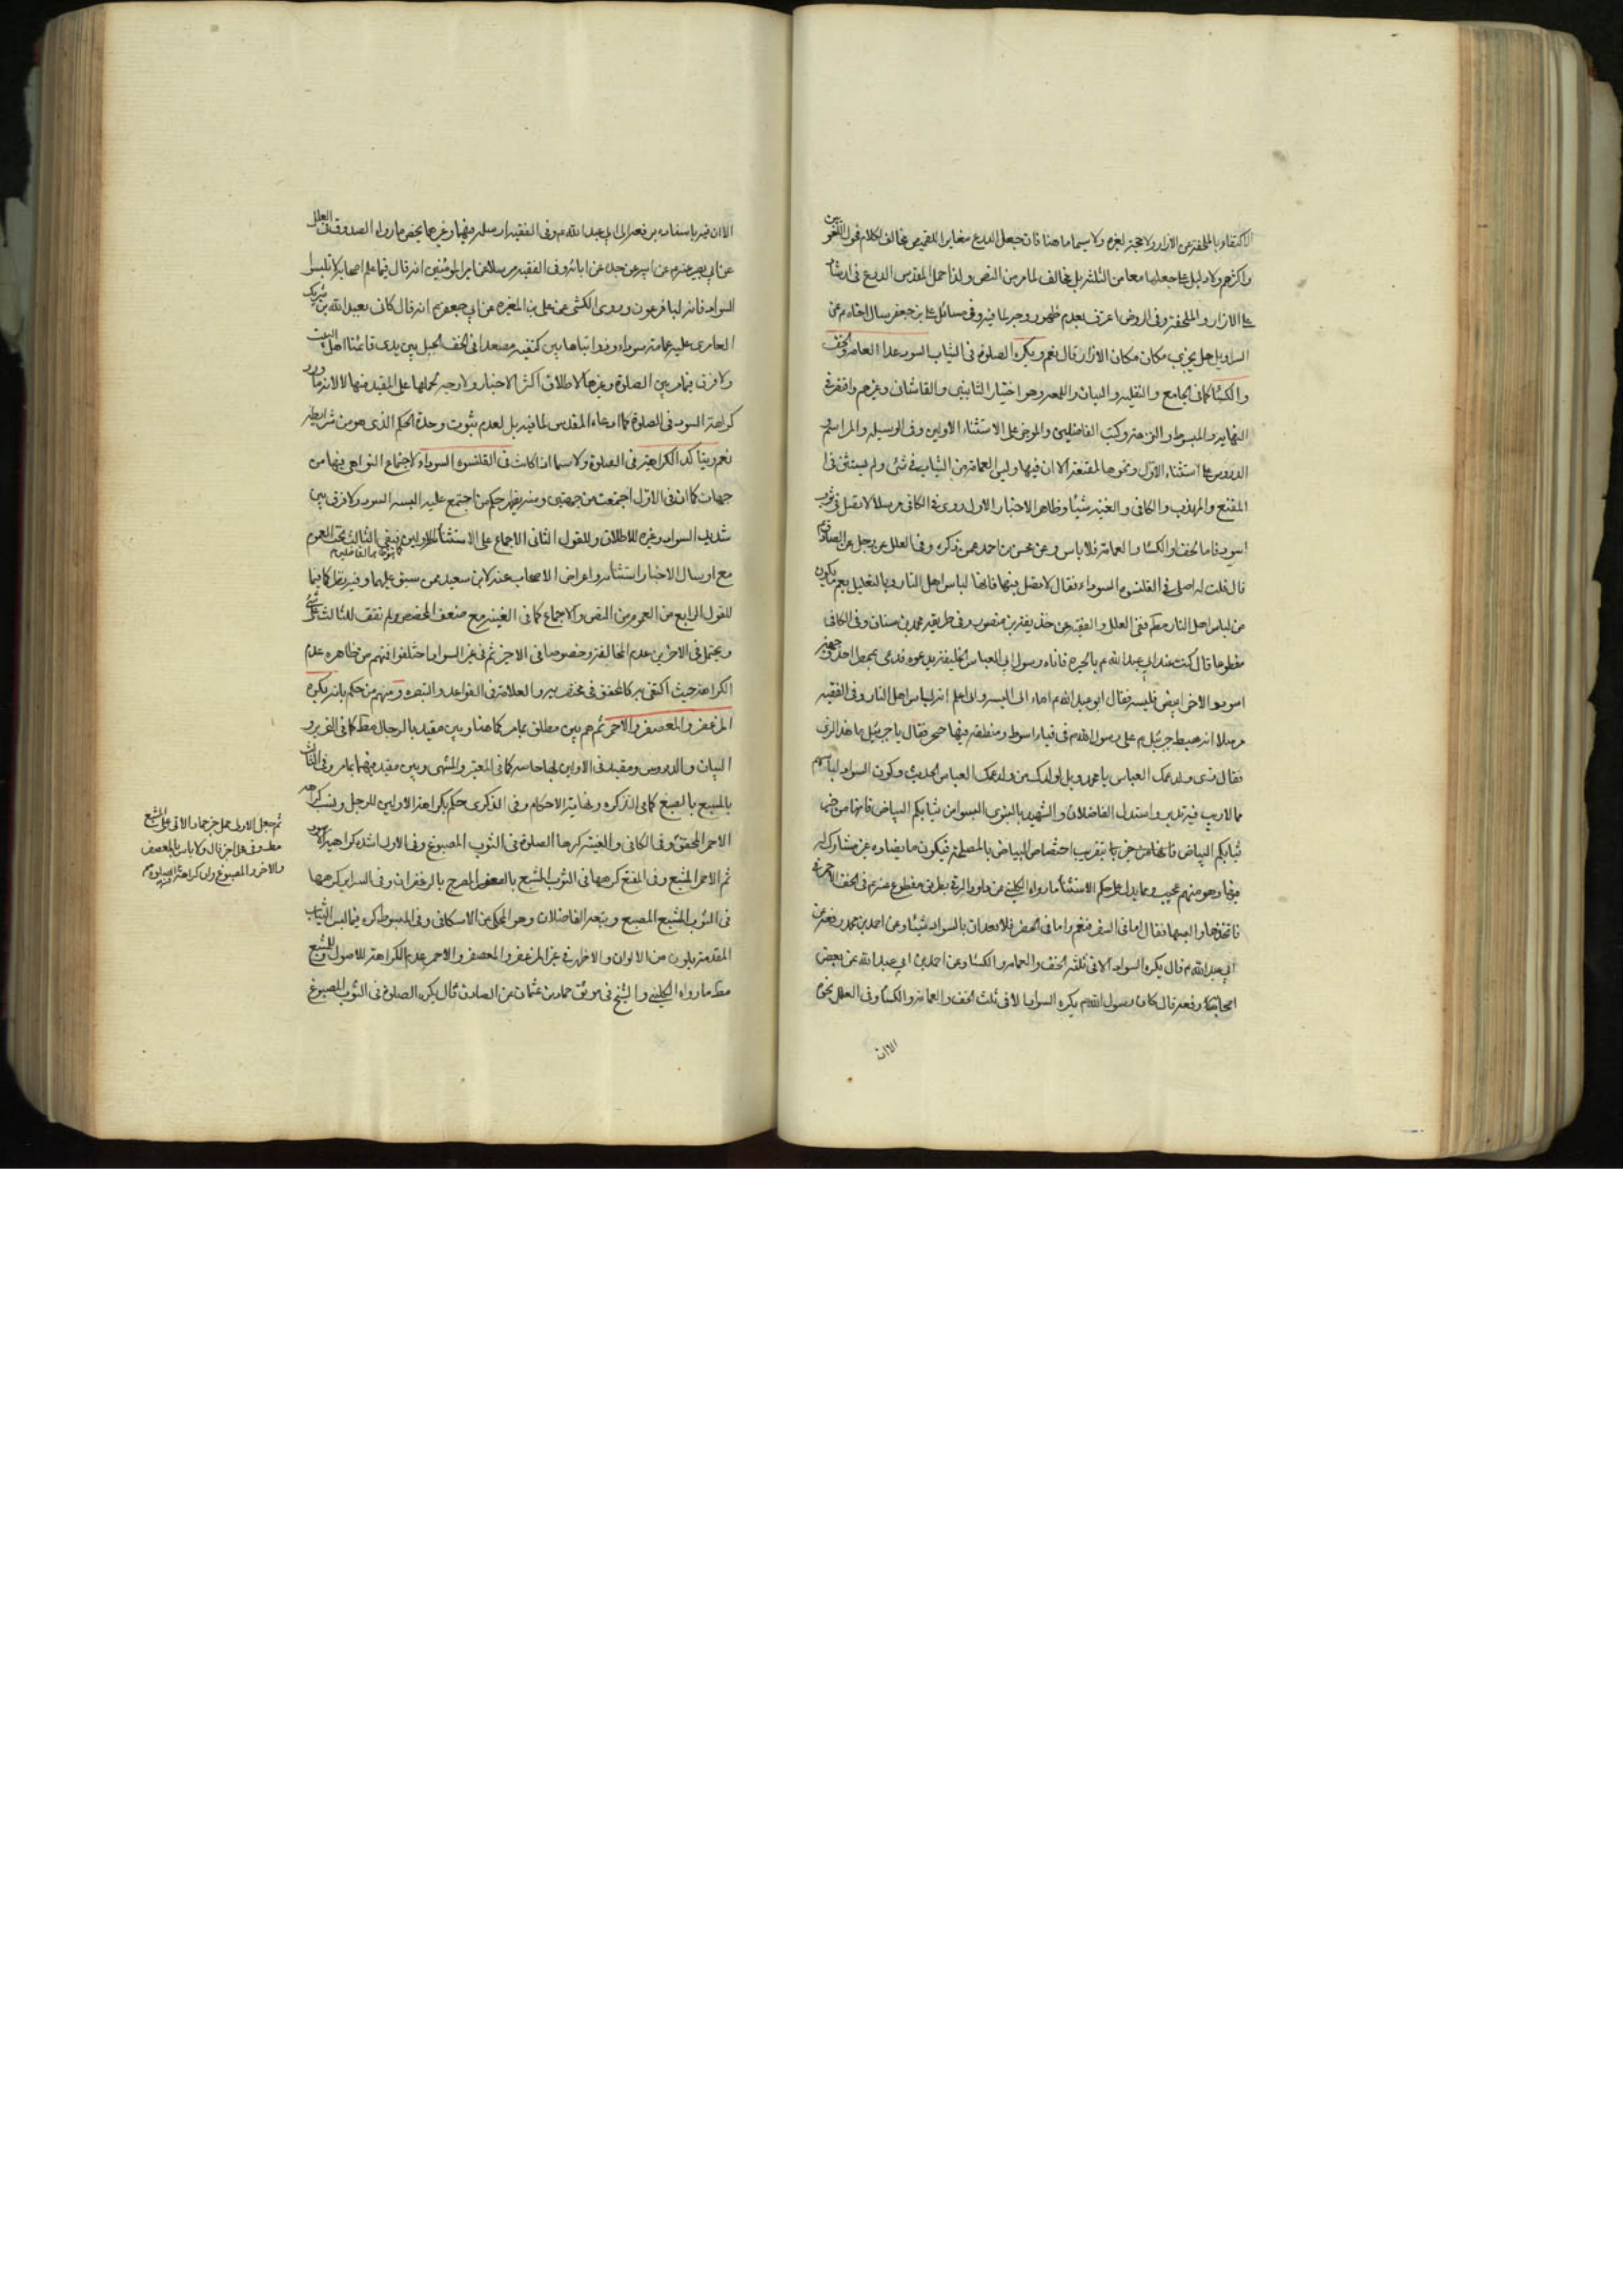 الاكتفاء بالملحفة عن الازار ولا حجة لغيره ولا سيما ما هنا فان جعل الدرع مغايرا للقميص مخالف لكلام اللغويين
واكثرهم ولا دليل على جعلها معا من الثلثة بل مخالف لما مر من النص ولذا حمل المقدس الدرع في ارشاد
على الازار والملحفة وفى الروض اعترف بعدم ظهور وجه لما فيه وفى مسائل على بن جعفر سال اخاه م عن
السراويل هل يجزى مكان الازار قال نعم ويكره الصلوة فى الثياب السود عدا العمامة والخف
والكساء كما فى الجامع والنقلية والبيان واللمعة وهو اختيار الثانيين والقاشانى وغيرهم واقتصر فى
النهاية والمبسوط والنزهة وكتب الفاضلين والموجز على الاستثناء الاولين وفى الوسيلة والمراسم و
الدروس على استثناء الاول ونحوها المقنعة الا ان فيها وليس العمامة من الثياب فى شئ ولم يستثن فى
المقنع والمهذب والكافى والغنية شيئا وظاهر الاخبار الاول روى فى الكافى مرسلا لا تصل فى ثوب
اسود فاما الخف او الكساء والعمامة فلا باس وعن محسن بن احمد عمن ذكره وفى العلل عن رجل عن الصادق م
قال قلت له اصلى فى القلنسوة السوداء فقال لا تصل فيها فانها لباس اهل النار وبالتعليل يعم ما يكون
من لباس اهل النار ففى العلل والفقيه عن حذيفة بن منصور وفى طريقه محمد بن سنان وفى الكافى
مقطوعا قال كنت عند ابى عبد الله م بالحيرة فاتاه رسول ابى العباس الخليفة يدعوه فدعى بممطر احد وجهيه
اسود والاخر ابيض فلبسه فقال ابو عبد الله م اما انى البسه وانا اعلم انه لباس اهل النار وفى الفقيه
مرسلا انه هبط جبرئيل م على رسول الله ص فى قباء اسود ومنطقة فيها خنجر فقال يا جبرئيل ما هذا الزى
فقال زى ولد عمك العباس يا محمد ويل لولدك من ولد عمك العباس الحديث وكون السواد لباسهم
مما لا ريب فيه واستدل الفاضلان والشهيد بالنبوى البسوا من ثيابكم البياض فانها من خير
ثيابكم البياض بتقريب اختصاص البياض بالمصلحة فيكون ما يضاده غير مشارك له
فيها وهو منهم عجيب ومما يدل على حكم الاستثناء ما رواه الكلينى عن داود الرقى بطريق مقطوع عنه م فى الخف الاحمر
فاتخذها والبسها فقال اما فى السفر فنعم واما فى الحضر فلا تعدلن بالسواد شيئا وعن احمد بن محمد رفعه عن
ابى عبد الله م قال يكره السواد الا فى ثلثة الخف والعمامة والكساء وعن احمد بن ابى عبد الله عن بعض
اصحابنا رفعه قال كان رسول الله ص يكره السواد الا فى ثلث الخف والعمامة والكساء وفى العلل نحوه
الا ان
الا ان فيه باسناده يرفعه الى ابى عبد الله م وفى الفقيه ارسله فيها وغيرها يخص ما رواه الصدوق فى العلل
عن ابى بصير عنه م عن ابيه عن جده عن ابائه وفى الفقيه مرسلا عن امير المؤمنين انه قال فيما علم اصحابه لا تلبسوا
السواد فانه لباس فرعون وروى الكشى عن على بن المغيرة عن ابى جعفر م انه قال كانى بعبد الله بن شريك
العامرى عليه عمامة سوداء وذؤابتاها بين كتفيه مصعدا فى لحف الجبل بين يدى قائمنا اهل البيت
ولا فرق فيما مر بين الصلوة وغيرها لاطلاق اكثر الاخبار ولا وجه لحملها على المقيد منها
كراهة السود فى الصلوة كما ادعاه المقدس لما فيه بل لعدم ثبوت وحدة الحكم الذى هو من شرايطه
نعم ربما تاكد الكراهة فى الصلوة ولا سيما اذا كانت فى القلنسوة السوداء لاجتماع النواهى فيها من
جهات كما ان فى الاول اجتمعت من جهتين ومنه يظهر حكم من اجتمع عليه البسة السود ولا فرق بين
شديد السواد وغيره للاطلاق وللقول الثانى الاجماع على الاستثناء الاولين فبقى الثالث تحت العموم
مع ارسال الاخبار باستثنائه واعراض الاصحاب عنه لابن سعيد ممن سبق عليهما وفيه نظر كما فيما
للقول الرابع من العموم من النص والاجماع كما فى الغنية مع ضعف المخصص ولم نقف للثالث على شئ
ويحتمل فى الاخرين عدم المخالفة وخصوصا فى الاخير ثم فى غير السواد اختلفوا فمنهم من ظاهره عدم
الكراهة حيث اكتفى به كالمحقق فى مختصريه والعلامة فى القواعد والتبصرة ومنهم من حكم بانه يكره
المزعفر والمعصفر والاحمر ثم هم بين مطلق كما هنا وبين مقيد بالرجال مط كما فى التحرير و
البيان والدروس ومقيد فى الاولين كما فى المعتبر والمنتهى وبين مقيد منهما بما مر وفى الثالث
بالمشبع بالصبغ كما فى التذكرة ونهاية الاحكام وفى الذكرى حكم بكراهة الاولين للرجل ونسب كراهة
الاحمر للمحقق وفى الكافى والغنية كرها الصلوة فى الثوب المصبوغ وفى الاول اشده كراهية الاسود
ثم الاحمر المشبع وفى المقنع كرهها فى الثوب المشبع بالعصفر المضرج بالزعفران وفى السراير كرهها
فى الثوب المشبع الصبغ وتبعه الفاضلان وهو المحكى عن الاسكافى وفى المبسوط كره فيما لبس الثياب
المقدمة بلون من الالوان والاظهر فى غير المزعفر والمعصفر والاحمر عدم الكراهة للاصول وللمشبع
مط ما رواه الكلينى والشيخ فى موثق حماد بن عثمان عن الصادق قال يكره الصلوة فى الثوب المصبوغ
ثم جعل الاولى حمل خبر حماد الاتى على المشبع
مط وفى محل اخر قال ولا باس بالمعصفر
والاحمر والمصبوغ وان كراهة الصلوة فيه